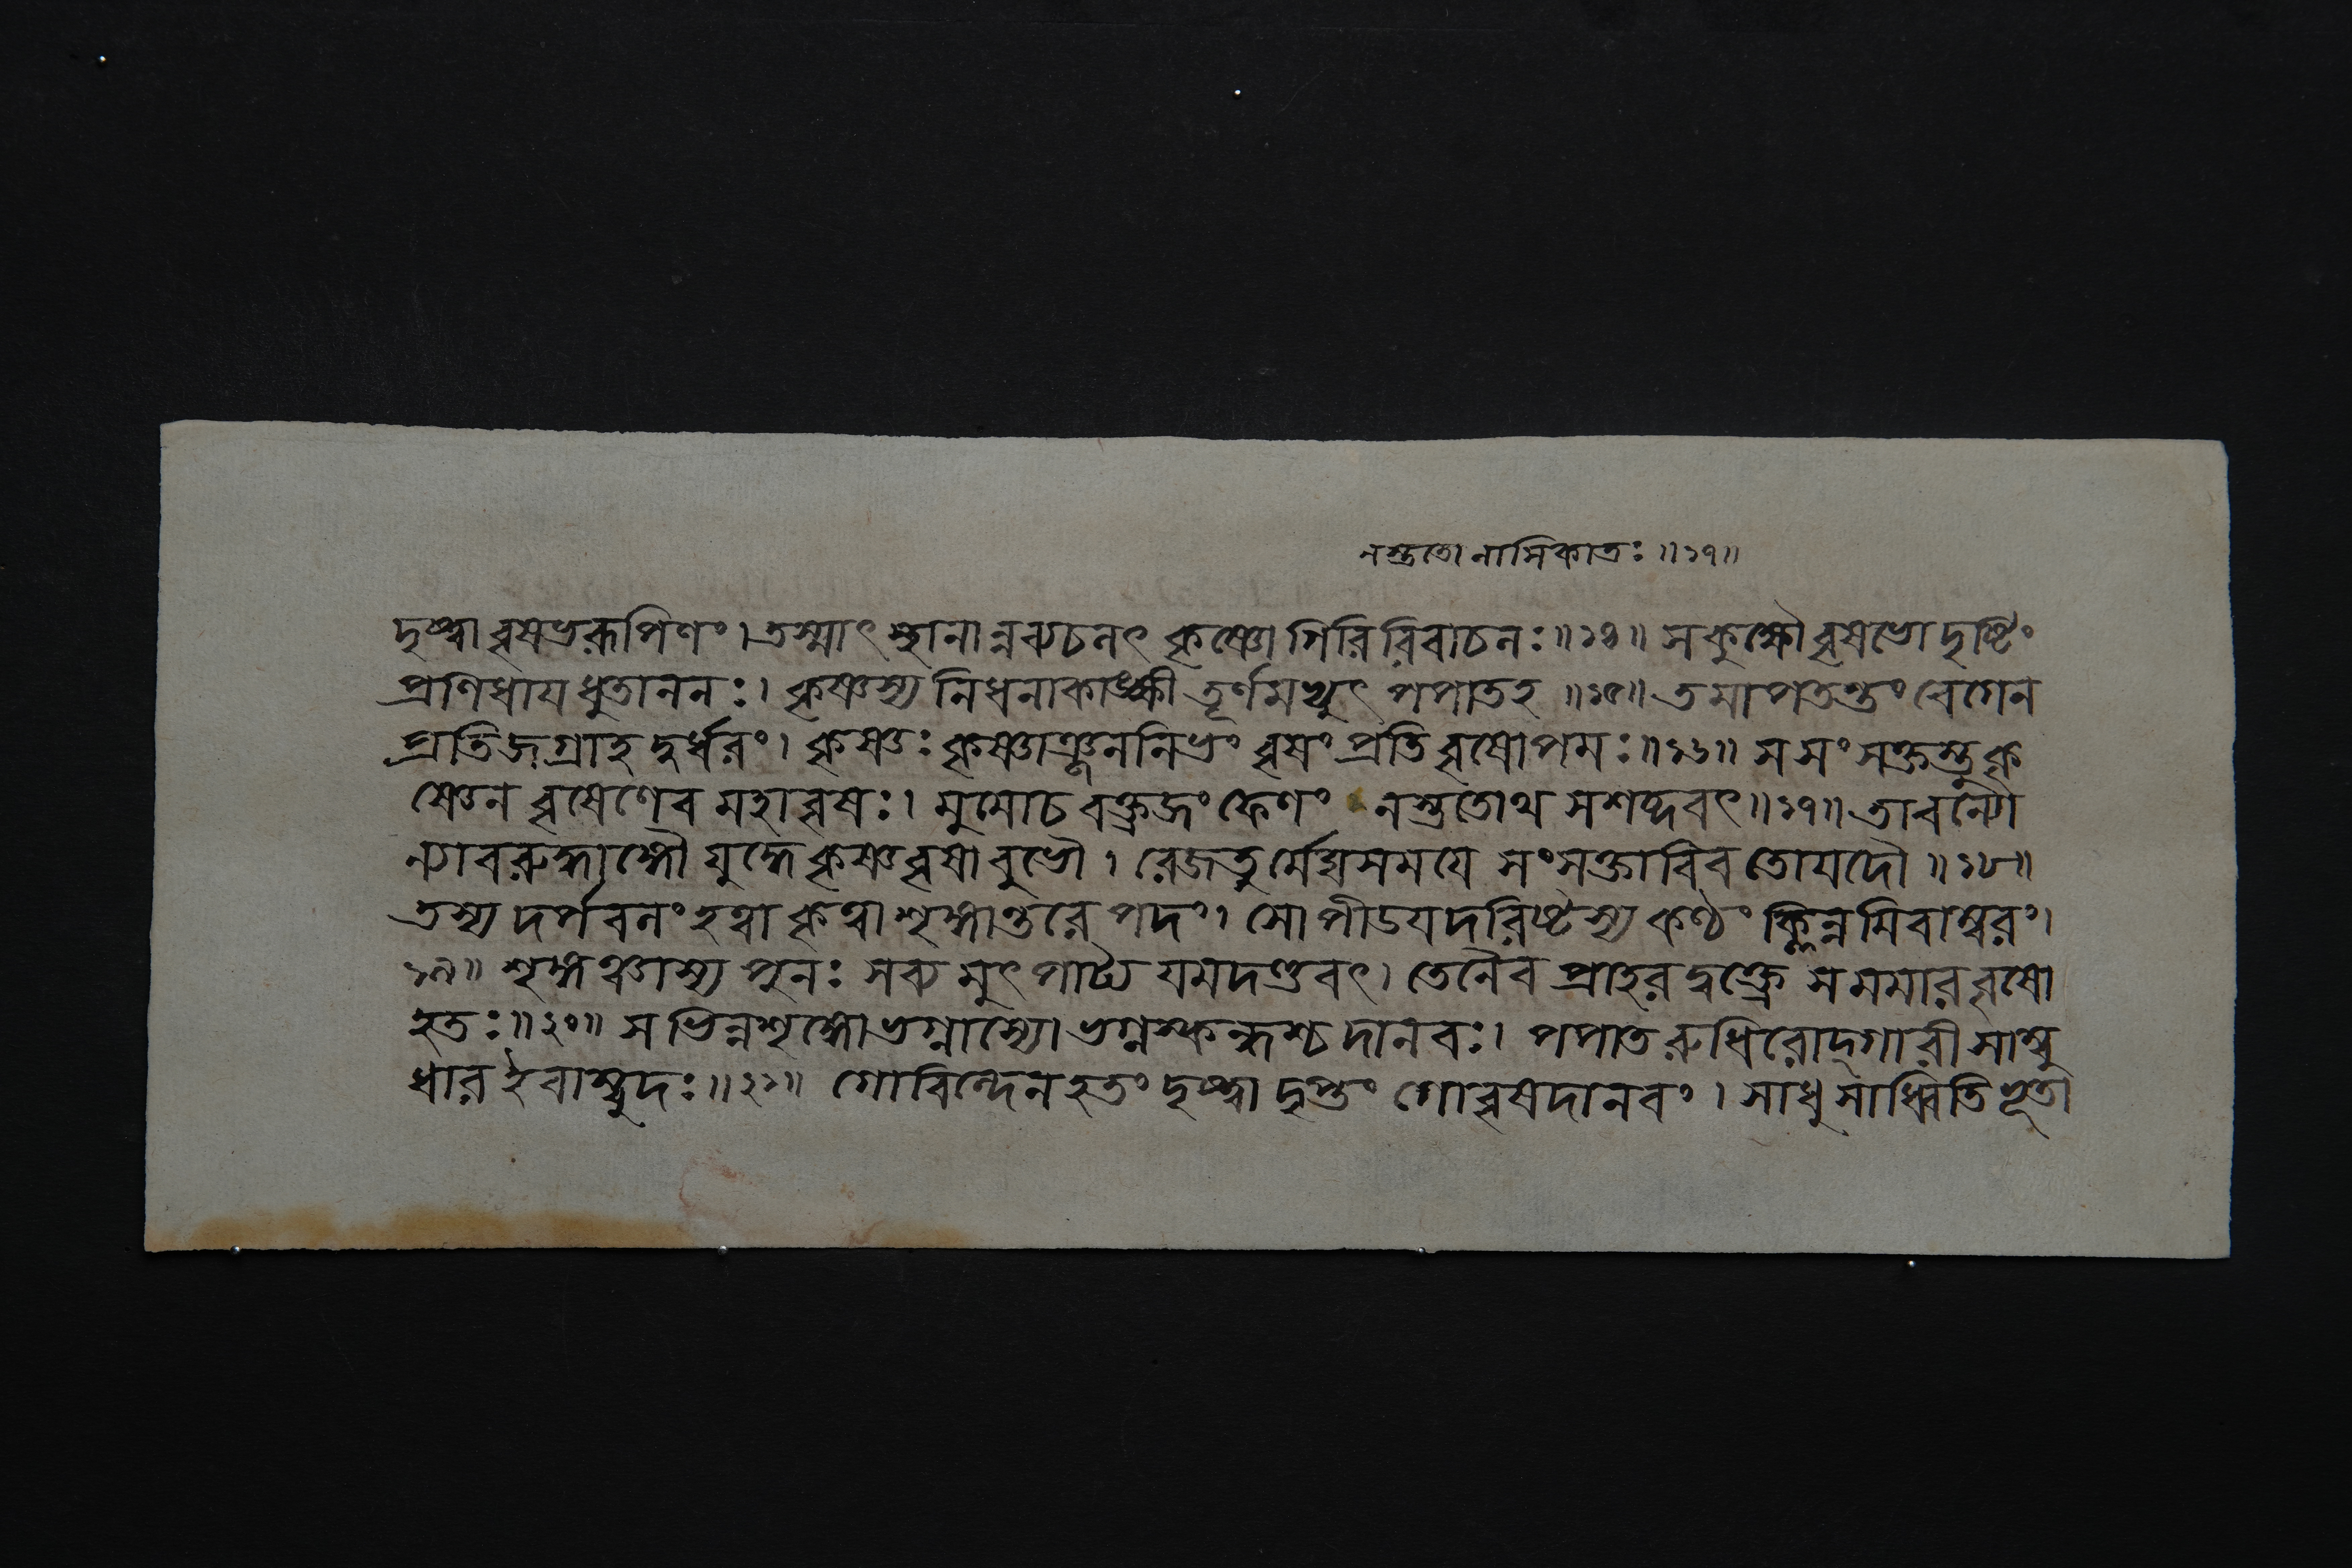 নস্ততো নাসিকাতঃ ॥১৭॥
দৃষ্ট্বা বৃষভরূপিণং। তস্মাৎ স্থানান্নব্যচলৎ কৃষ্ণো গিরিরিবাচলঃ॥১৪॥ স কুক্ষৌ বৃষভো দৃষ্টিং
প্রণিধায ধুতাননঃ। কৃষ্ণস্য নিধনাকাঙ্ক্ষী তূর্ণমভ্যুৎপপাতহ ॥১৫॥ তমাপতন্তং বেগেন
প্রতিজগ্রাহ দুর্ধরং। কৃষ্ণঃ কৃষ্ণাঞ্জননিভং বৃষং প্রতি বৃষোপমঃ॥১৬॥ স সংসক্তস্তু কৃ
ষ্ণেন বৃষেণেব মহাবৃষঃ। মুমোচ বক্ত্রজং ফেণং নস্ততোথ সশব্দবৎ॥১৭॥ তাবন্যো
ন্যাবরুদ্ধাঙ্গৌ যুদ্ধে কৃষ্ণবৃষাবুভৌ। রেজতুর্মেঘসমযে সংসক্তাবিব তোযদৌ ॥১৮॥
তস্য দর্পবলং হত্বা কৃত্বা শৃঙ্গান্তরে পদং। সোপীডযদরিষ্টস্য কণ্ঠং ক্লিন্নমিবাম্বরং।
১৯॥ শৃঙ্গঞ্চাস্য পুনঃ সব্যমুৎপাট্য যমদণ্ডবৎ। তেনৈব প্রাহরদ্বক্ত্রে স মমার বৃষো
হতঃ॥২০॥ স ভিন্নশৃঙ্গো ভগ্নাস্যো ভগ্নস্কন্ধশ্চ দানবঃ। পপাত রুধিরোদ্গারী সাম্বু
ধার ইবাম্বুদঃ॥২১॥ গোবিন্দেন হতং দৃষ্ট্বা দৃপ্তং গোবৃষদানবং। সাধু সাধ্বিতি ভূতা